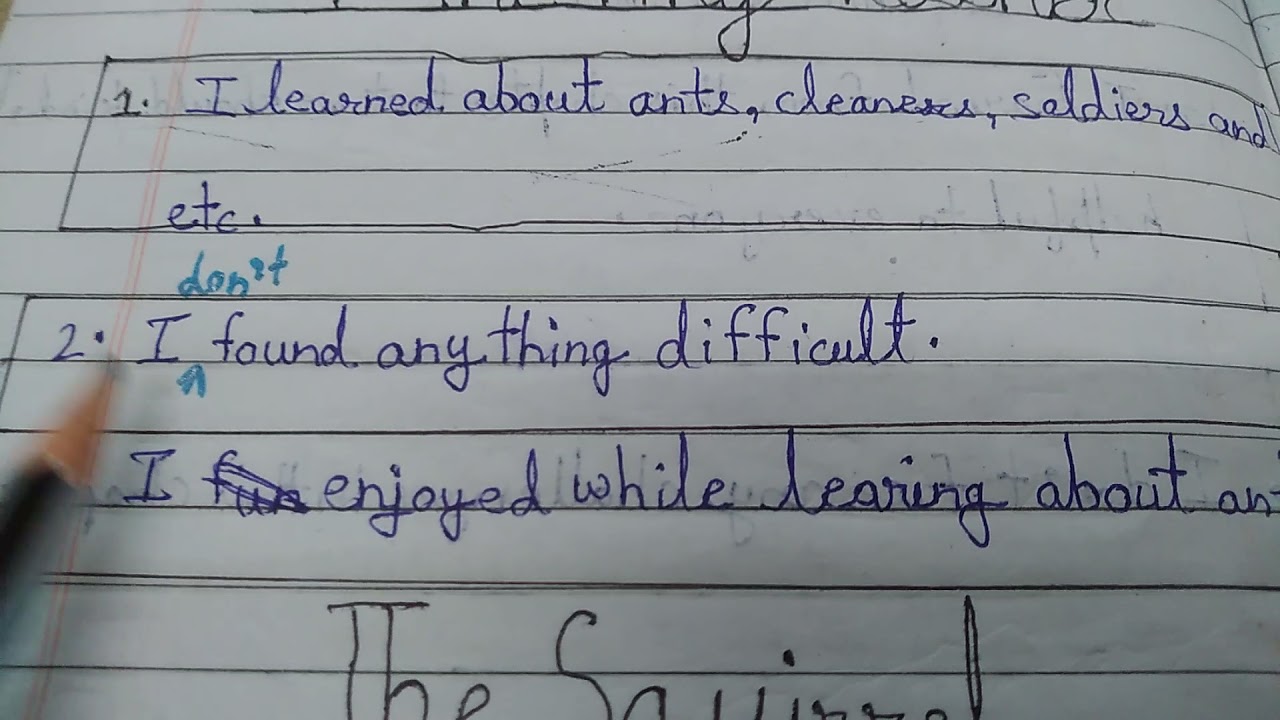 1. I learned about ants, cleaners, soldiers and
etc.
don't
2. I found anything difficult.
I enjoyed while learing about an
The Squirrel